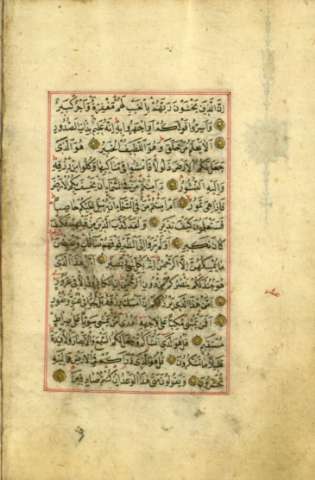 اِنَّ الَّذِينَ يَخْشَوْنَ رَبَّهُمْ بِالْغَيْبِ لَهُمْ مَغْفِرَةٌ وَاَجْرٌ كَبِيرٌ
وَاَسِرُّوا قَوْلَكُمْ اَوِ اجْهَرُوا بِهِ اِنَّهُ عَلِيمٌ بِذَاتِ الصُّدُورِ
اَلَا يَعْلَمُ مَنْ خَلَقَ وَهُوَ اللَّطِيفُ الْخَبِيرُ هُوَ الَّذِى
جَعَلَ لَكُمُ الْاَرْضَ ذَلُولًا فَامْشُوا فِى مَنَاكِبِهَا وَكُلُوا مِنْ رِزْقِهِ
وَاِلَيْهِ النُّشُورُ ءَاَمِنْتُمْ مَنْ فِى السَّمَاءِ اَنْ يَخْسِفَ بِكُمُ الْاَرْضَ
فَاِذَا هِىَ تَمُورُ اَمْ اَمِنْتُمْ مَنْ فِى السَّمَاءِ اَنْ يُرْسِلَ عَلَيْكُمْ حَاصِبًا
فَسَتَعْلَمُونَ كَيْفَ نَذِيرِ وَلَقَدْ كَذَّبَ الَّذِينَ مِنْ قَبْلِهِمْ فَكَيْفَ
كَانَ نَكِيرِ اَوَلَمْ يَرَوْا اِلَى الطَّيْرِ فَوْقَهُمْ صَافَّاتٍ وَيَقْبِضْنَ
مَا يُمْسِكُهُنَّ اِلَّا الرَّحْمٰنُ اِنَّهُ بِكُلِّ شَىْءٍ بَصِيرٌ اَمَّنْ هٰذَا الَّذِى
هُوَ جُنْدٌ لَكُمْ يَنْصُرُكُمْ مِنْ دُونِ الرَّحْمٰنِ اِنِ الْكَافِرُونَ اِلَّا فِى غُرُورٍ
اَمَّنْ هٰذَا الَّذِى يَرْزُقُكُمْ اِنْ اَمْسَكَ رِزْقَهُ بَلْ لَجُّوا فِى عُتُوٍّ وَنُفُورٍ
اَفَمَنْ يَمْشِى مُكِبًّا عَلٰى وَجْهِهِ اَهْدٰى اَمَّنْ يَمْشِى سَوِيًّا عَلٰى صِرَاطٍ
مُسْتَقِيمٍ قُلْ هُوَ الَّذِى اَنْشَاَكُمْ وَجَعَلَ لَكُمُ السَّمْعَ وَالْاَبْصَارَ وَالْاَفْئِدَةَ
قَلِيلًا مَا تَشْكُرُونَ قُلْ هُوَ الَّذِى ذَرَاَكُمْ فِى الْاَرْضِ وَاِلَيْهِ
تُحْشَرُونَ وَيَقُولُونَ مَتٰى هٰذَا الْوَعْدُ اِنْ كُنْتُمْ صَادِقِينَ